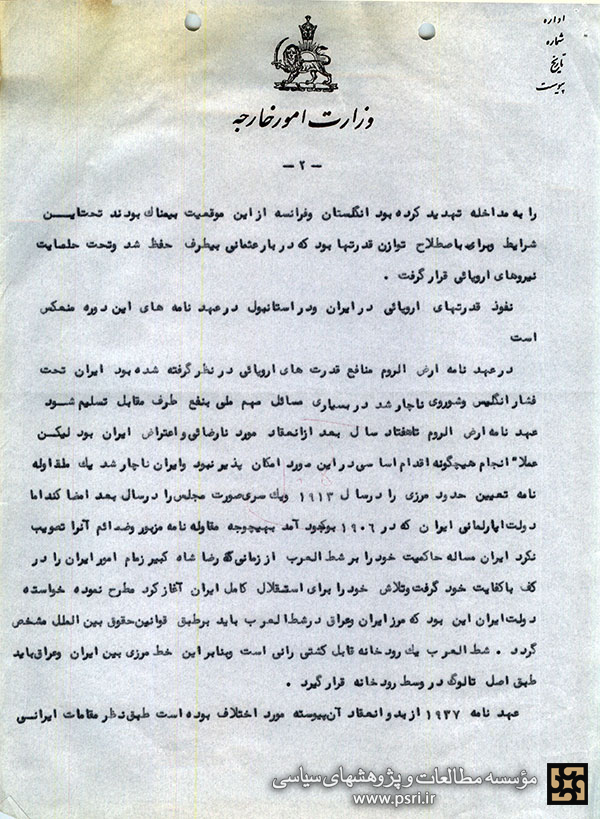 اداره
شماره
تاریخ
پیوست
وزارت امور خارجه
- ۲ -
را به مداخله تهدید کرده بود انگلستان وفرانسه از این موقعیت بیمناك بودند تحتایـــن
شرایط وبرای باصطلاح توازن قدرتها بود که دربارعثمانی بیطرف حفظ شد وتحت حلمایت
نیروهای اروپائی قرار گرفت .
نفوذ قدرتهای اروپائی در ایران ودر استانبول در عهد نامه های این دوره منعکس
است
در عهد نامه ارض الروم منافع قدرت های اروپائی در نظر گرفته شده بود ایران تحت
فشار انگلیس وشوروی ناچار شد در بسیاری مسائل مهم ملی بنفع طرف مقابل تسلیم شـــود
عهد نامه ارض الروم تاهفتاد سال بعد ازانعقاد مورد نارضائی واعتراض ایران بود لیکــن
عملا" انجام هیچگونه اقدام اساسی در این مورد امکان پذیر نبود وایران ناچار شد یك مقاوله
نامه تعیین حدود مرزی را در سال ۱۹۱۳ ویك سری صورت مجلس را در سال بعد امضا کند اما
دولت پارلمانی ایران که در ۱۹۰۶ بوجود آمد بهیچوجه مقاوله نامه مزبور وضمائم آنرا تصویب
نکرد ایران مساله حاکمیت خود را بر شط العرب از زمانی که رضا شاه کبیر زمام امور ایران را در
کف باکفایت خود گرفت وتلاش خود را برای استقلال کامل ایران آغاز کرد مطرح نموده خواسته
دولت ایران این بود که مرز ایران وعراق در شط العرب باید برطبق قوانین حقوق بین الملل مشخص
گردد . شط العرب یك رودخانه قابل کشتی رانی است وبنابر این خط مرزی بین ایران وعراق باید
طبق اصل تالوگ در وسط رودخانه قرار گیرد .
عهد نامه ۱۹۳۷ از بدو انعقاد آن پیوسته مورد اختلاف بوده است طبق نظر مقامات ایرانــی
مؤسسه مطالعات و پژوهشهای سیاسی
www.psri.ir